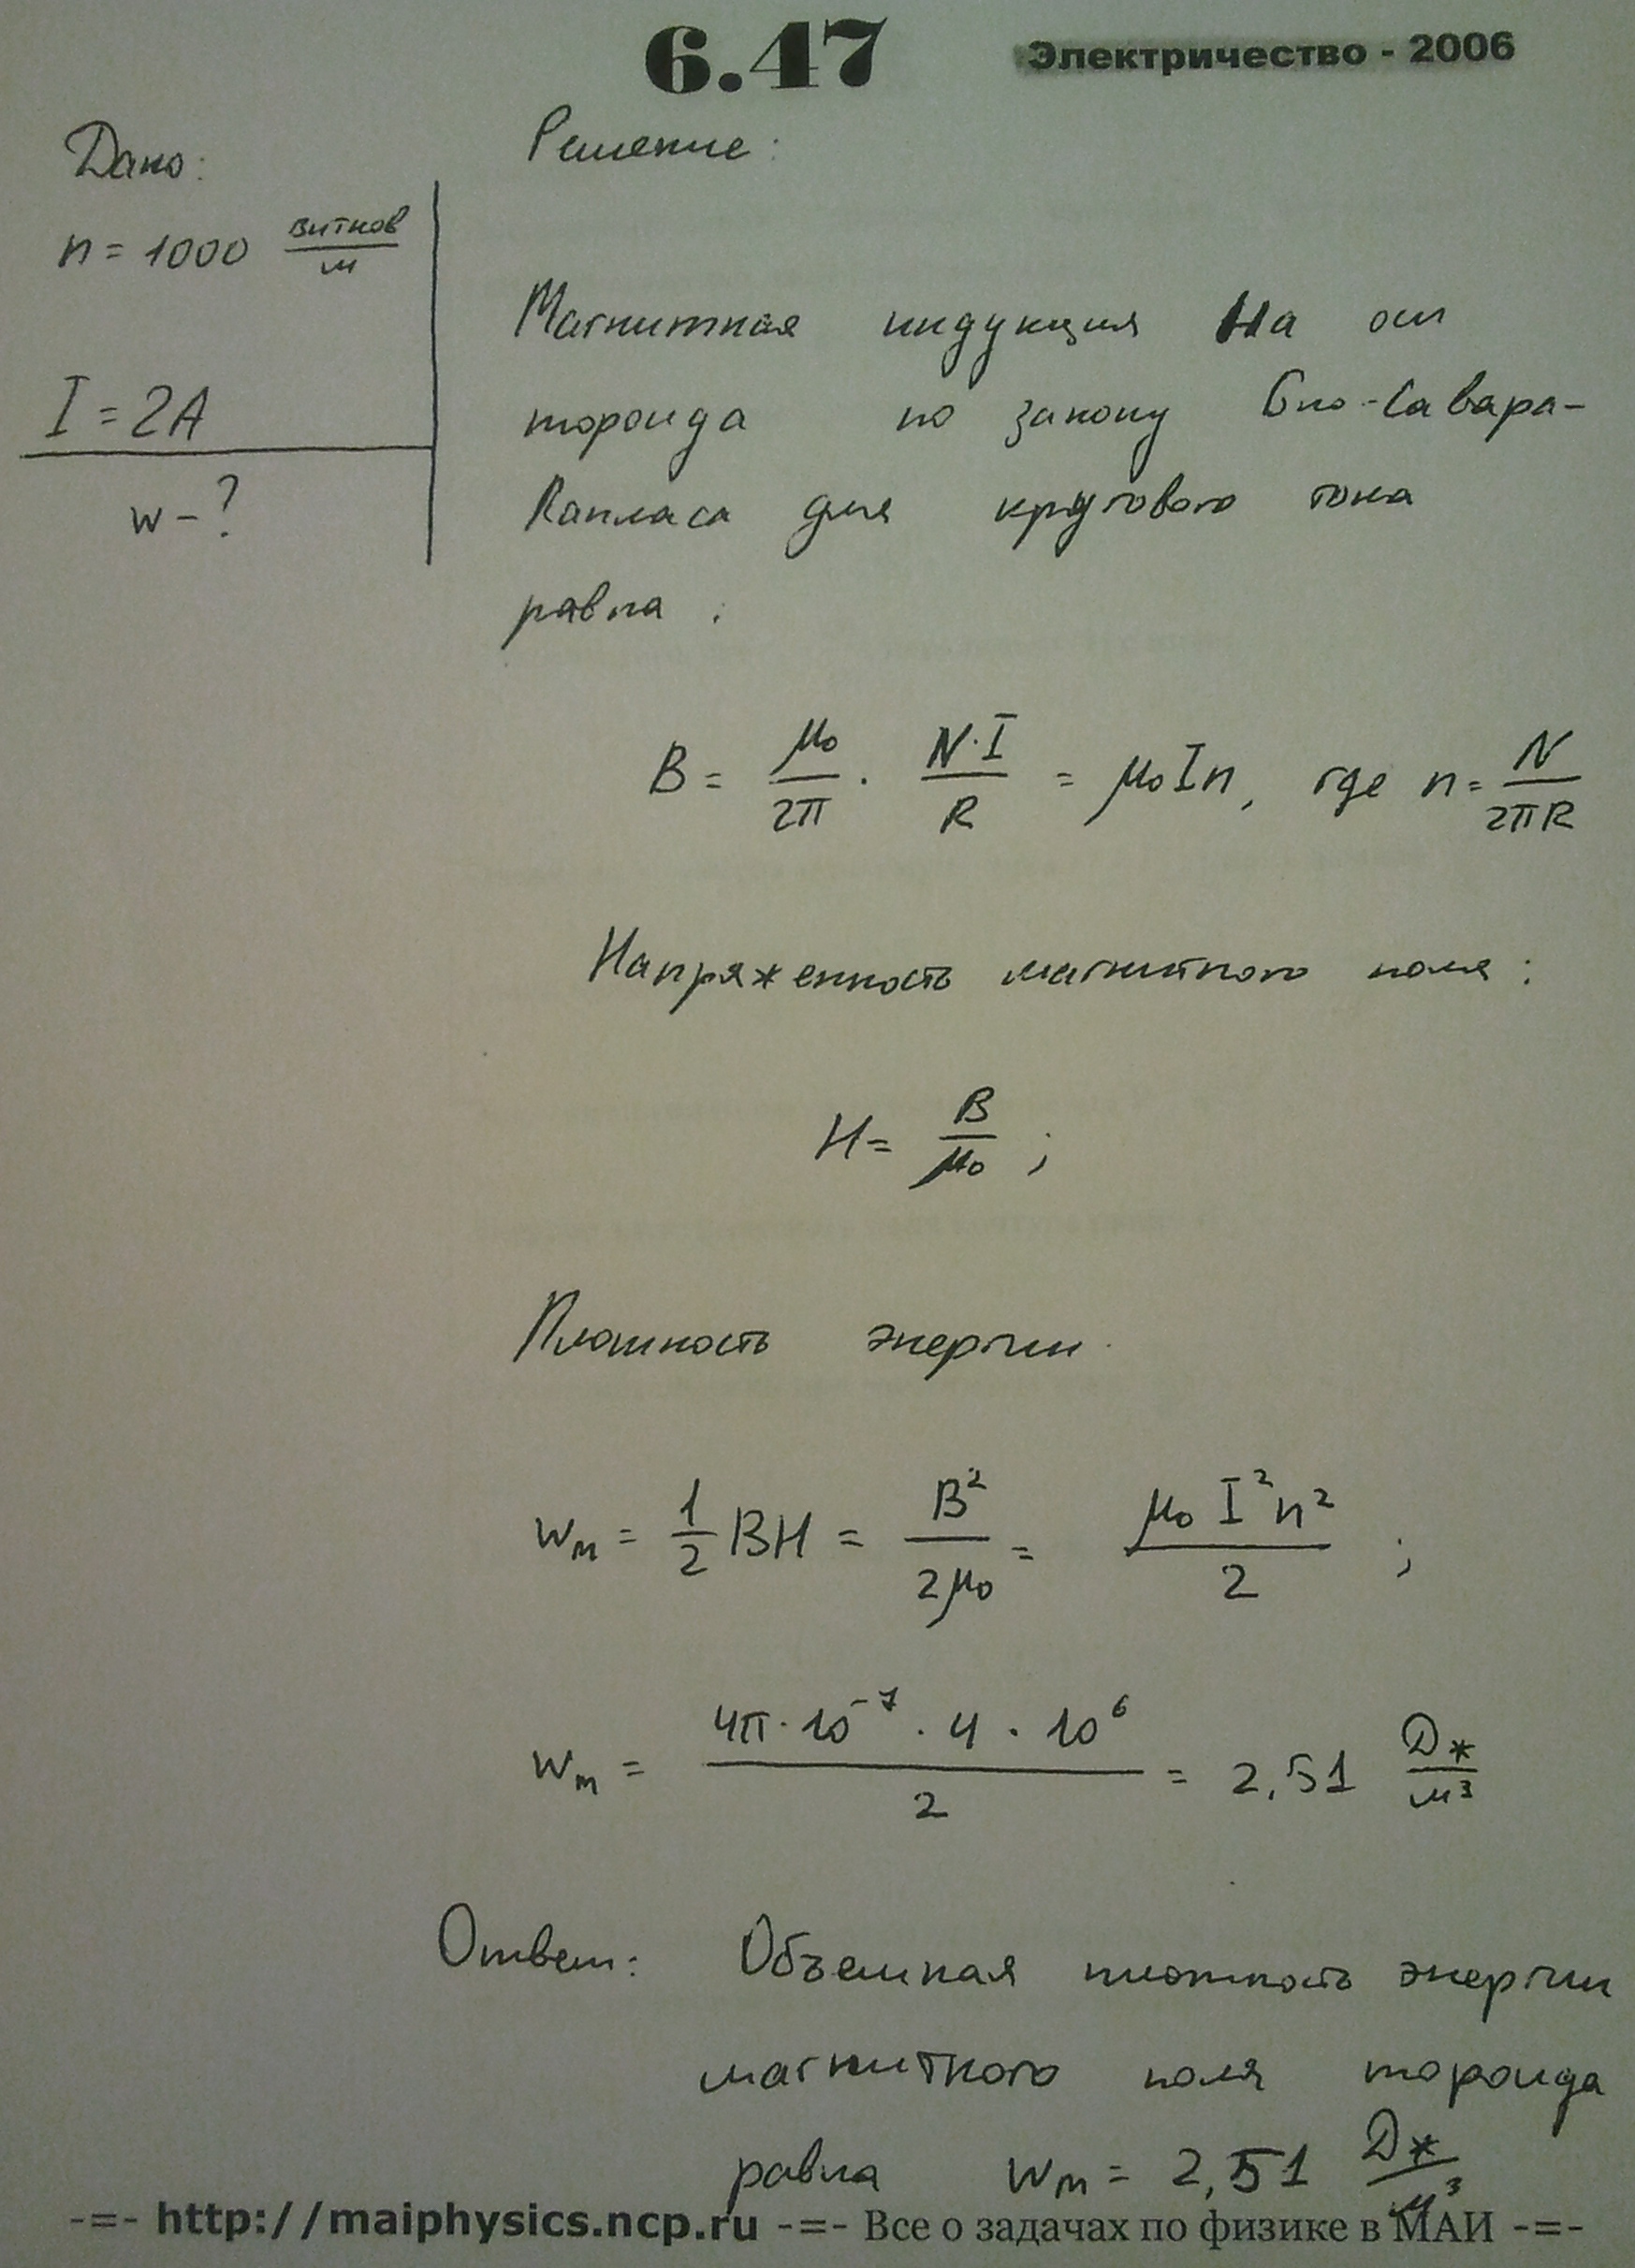 6.47 Электричество - 2006
Дано: Решение:
n = 1000 витков/м
Магнитная индукция на оси
I = 2А тороида по закону Био-Савара-
w - ? Лапласа для кругового тока
равна:
B = μ₀/2π · N·I/R = μ₀In, где n = N/2πR
Напряженность магнитного поля:
H = B/μ₀ ;
Плотность энергии
wₘ = 1/2 BH = B²/2μ₀ = μ₀I²n²/2 ;
wₘ = 4π·10⁻⁷·4·10⁶/2 = 2,51 Дж/м³
Ответ: Объемная плотность энергии
магнитного поля тороида
равна wₘ = 2,51 Дж/м³
-=- http://maiphysics.ncp.ru -=- Все о задачах по физике в МАИ -=-